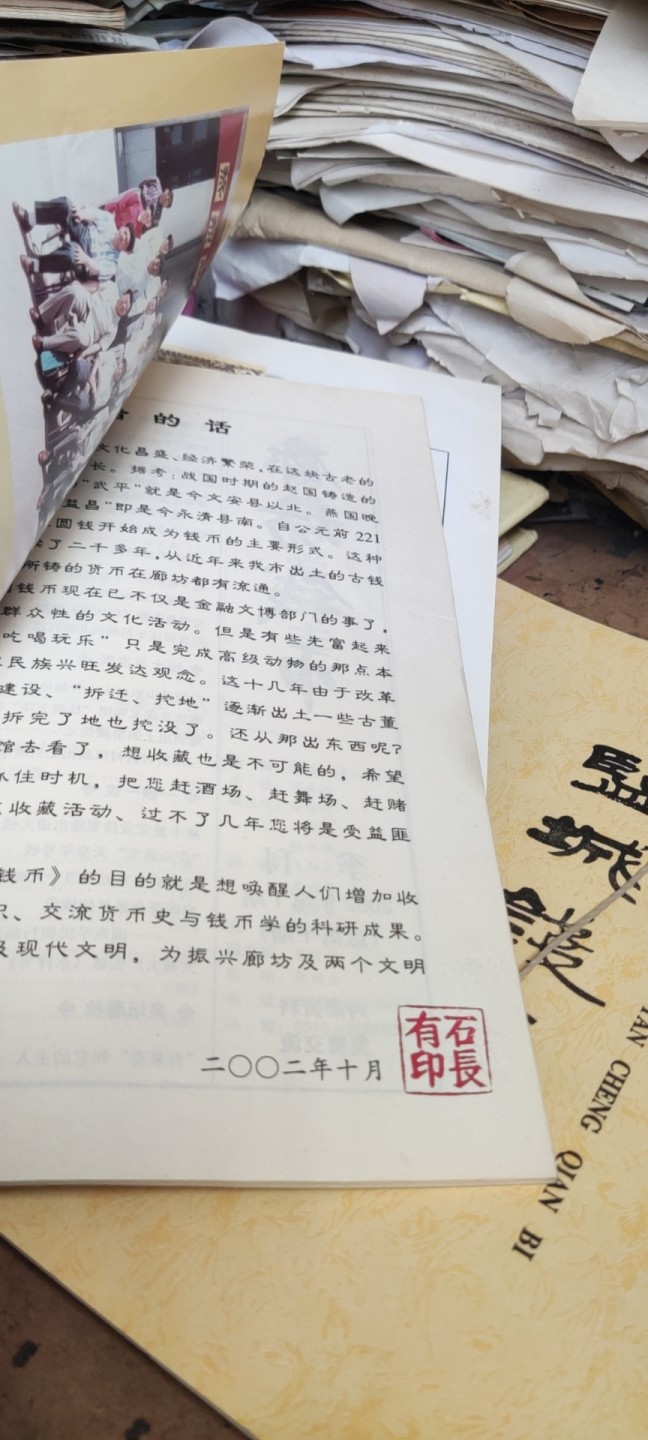 的话
文化昌盛、经济繁荣,在这块古老的
长。据考:战国时期的赵国铸造的
"武平"就是今文安县以北。燕国晚
益昌"即是今永清县南。自公元前221
圆钱开始成为钱币的主要形式。这种
了二千多年,从近年来我市出土的古钱
所铸的货币在廊坊都有流通。
钱币现在已不仅是金融文博部门的事了,
群众性的文化活动。但是有些先富起来
吃喝玩乐"只是完成高级动物的那点本
民族兴旺发达观念。这十几年由于改革
建设、"拆迁、挖地"逐渐出土一些古董
拆完了地也挖没了。还从那出东西呢?
馆去看了,想收藏也是不可能的,希望
抓住时机,把您赶酒场、赶舞场、赶赌
收藏活动、过不了几年您将是受益匪
钱币》的目的就是想唤醒人们增加收
识、交流货币史与钱币学的科研成果。
及现代文明,为振兴廊坊及两个文明
二〇〇二年十月
石長有印
盐城钱
CHENG QIAN BI